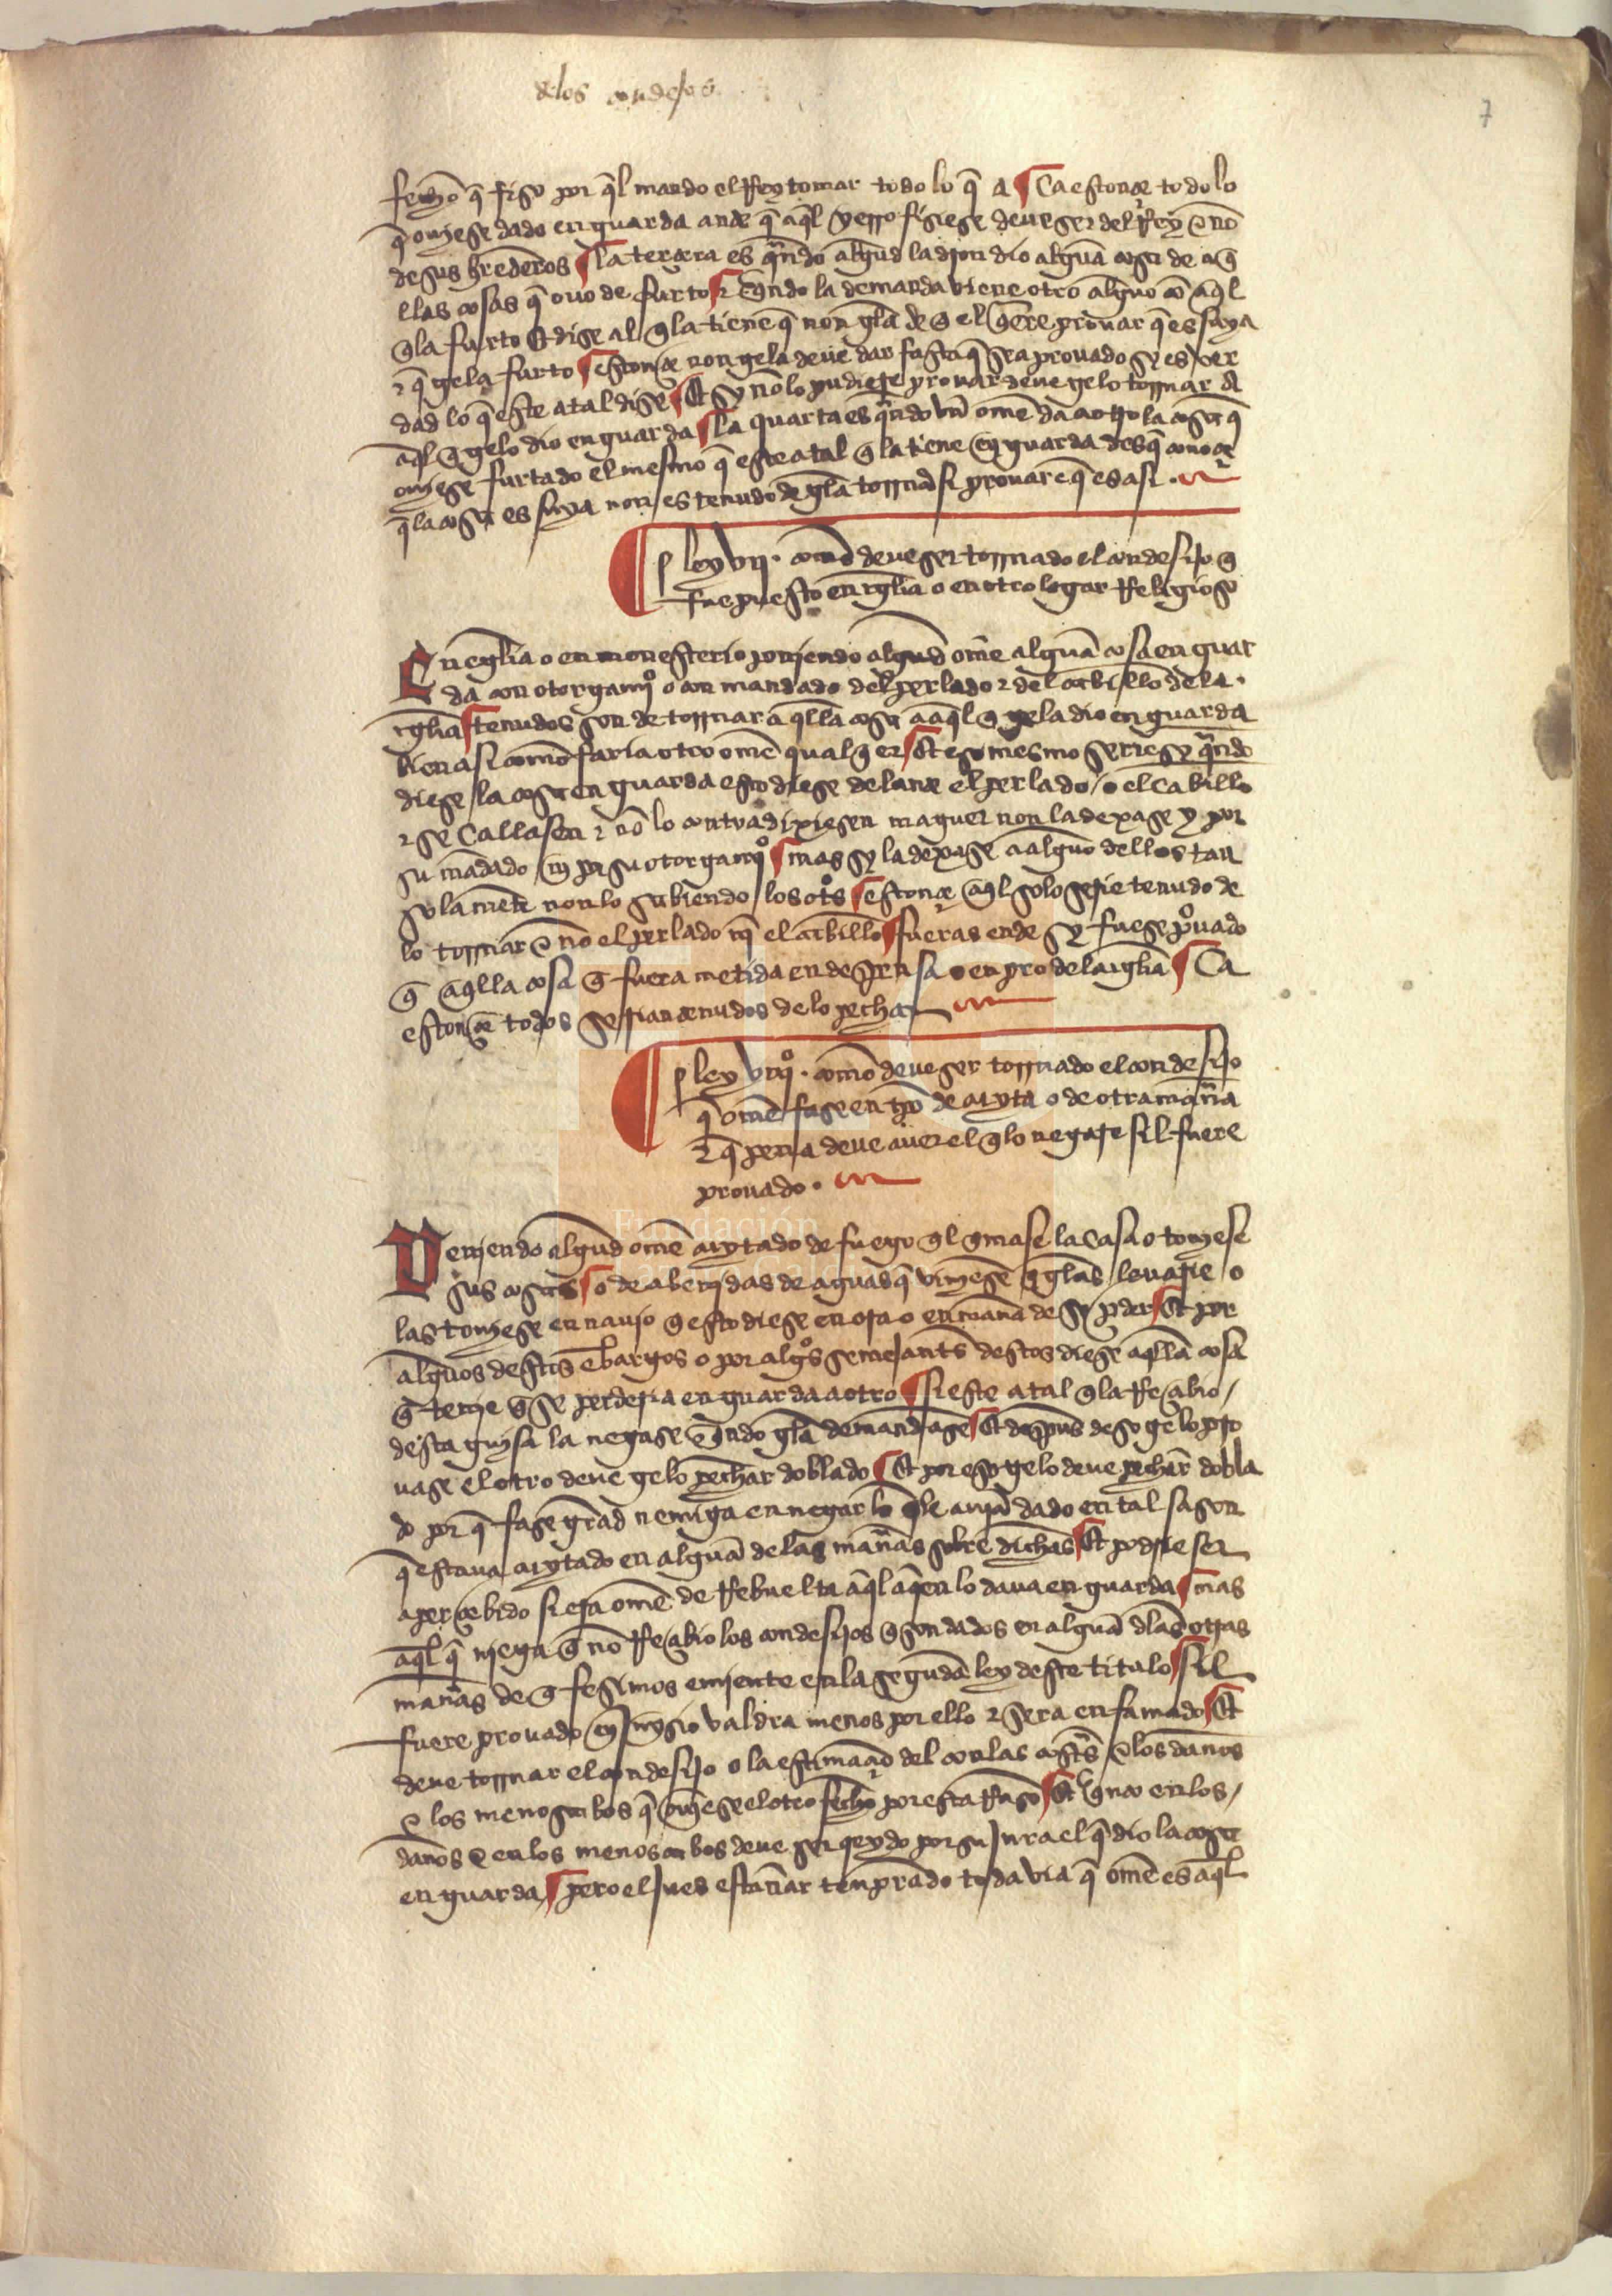 delos condesijos
7
fermo q̃ fiso por q̃l mando el Rey tomar todo lo q̃ a ¶ Ca estonçe todo lo
q̃ ouiese dado en guarda ante q̃ aq̃l yerro fisiese deue ser del Rey e nõ
de sus herederos ¶ la terçera es q̃ndo algud ladron dio algũa cosa de aq̃
llas cosas q̃ ouo de furto ¶ τ q̃ndo la demanda viene otro alguno cõ aq̃l
q̃ la furto Et dise al q̃ la tiene q̃ non gela de q̃ el q̃ere prouar q̃ es suya
τ q̃ gela furto ¶ estonçe non gela deue dar fasta q̃ sea prouado sy es ver
dad lo q̃ este atal dise ¶ Et sy nõ lo pudiese prouar deue gelo tornar a
aq̃l q̃ gelo dio en guarda ¶ la quarta es q̃ndo vn ome da a otro la cosa q̃
ouiese furtado el mesmo q̃ este atal q̃ la tiene en guarda desq̃ conoçe
q̃ la cosa es suya non es tenudo de gela tornar si prouare q̃ es asi .
¶ ley vij . como deue ser tornado el condesijo q̃
fue puesto en iglia o en otro logar Religioso
En eglia o en monesterio poniendo algud ome algũa cosa en guar
da con otorgamiº o con mandado del perlado τ del cabillo dela
iglia ¶ tenudos son de tornar aq̃lla cosa a aq̃l q̃ gela dio en guarda
bien asi como faria otro ome qualq̃ er ¶ Et eso mesmo serie sy q̃ndo
diese la cosa en guarda esto diese delante el perlado / o el cabillo
τ se callasen τ nõ lo contradixiesen maguer non la dexase y por
su mãdado nĩ por su otorgamiº ¶ mas sy la dexase a alguno dellos tan
sola mente non lo sabiendo los otºs ¶ estonçe aq̃l solo serie tenudo de
lo tornar e nõ el perlado nĩ el cabillo ¶ fueras ende sy fuese p̃uado
q̃ aq̃lla cosa q̃ fuera metida en despensa o en pro dela iglia ¶ Ca
estonçe todos serian tenudos de lo pechar
¶ ley viijº . como deue ser tornado el condesijo
q̃ ome fase en tp̃o de cuyta o de otra manera
τ q̃ pena deue auer el q̃ lo negase sil fuere
prouado .
Veniendo algud ome cuytado de fuego q̃l q̃mase la casa o touiese
sus cosas ¶ o de abenidas de aguas q̃ viniesen q̃ gelas leuarie o
las touiese en nauio q̃ estodiese en ora o en manera de se p̃der ¶ Et por
algũos destos ẽbargos o por algºs semejantes destos diese aq̃lla cosa
q̃ tenie q̃ se perderia en guarda a otro ¶ si este atal q̃ la Reçebio /
desta guisa la negase q̃ndo gela demandase ¶ Et despues deso gelo pro
uase el otro deue gelo pechar doblado ¶ Et por eso gelo deue pechar dobla
do por q̃ fase grãd nemiga en negar lo q̃ le auia dado en tal sason
q̃ estaua cuytado en algũa delas maneras sobre dichas ¶ Et podrie ser
aperçebido si era ome de Rebuelta aq̃l aq̃en lo daua en guarda ¶ mas
aq̃l q̃ niega q̃ nõ Reçebio los condesijos q̃ son dados en algũa dlas otras
maneras de q̃ fesimos emiente en la segũda ley deste titulo ¶ sil
fuere prouado en juysio valdra menos por ello τ sera enfamado ¶ Et
deue tornar el condesijo o la estimaçiõ del con las costas e los danos
e los menoscabos q̃ ouiese el otro fecho por esta Rasõ ¶ Et q̃nto en los /
danos e en los menoscabos deue ser creydo por su jura el q̃ dio la cosa
en guarda ¶ pero el jues estimar tenprado toda via q̃ ome es aq̃l